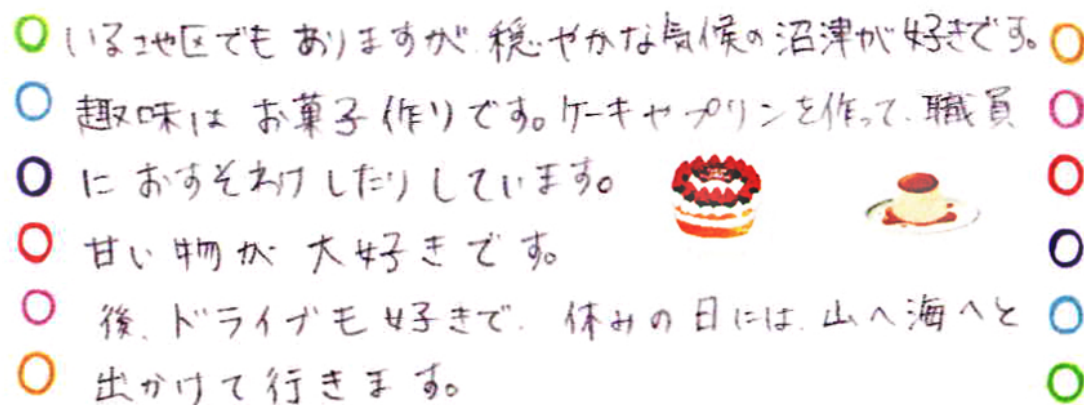 いる地区でもありますが、穏やかな気候の沼津が好きです。
趣味は お菓子作りです。ケーキやプリンを作って、職員
に おすそわけしたりしています。
甘い物が 大好きです。
後、ドライブも好きで、休みの日には、山へ海へと
出かけて行きます。